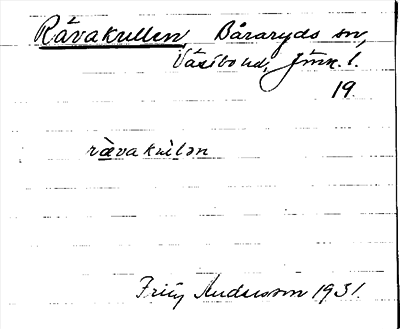 Rävakullen Båraryds sn,
Västbo hd, Jönk. l.
19.
rävakulən
Fritz Andersson 1931.